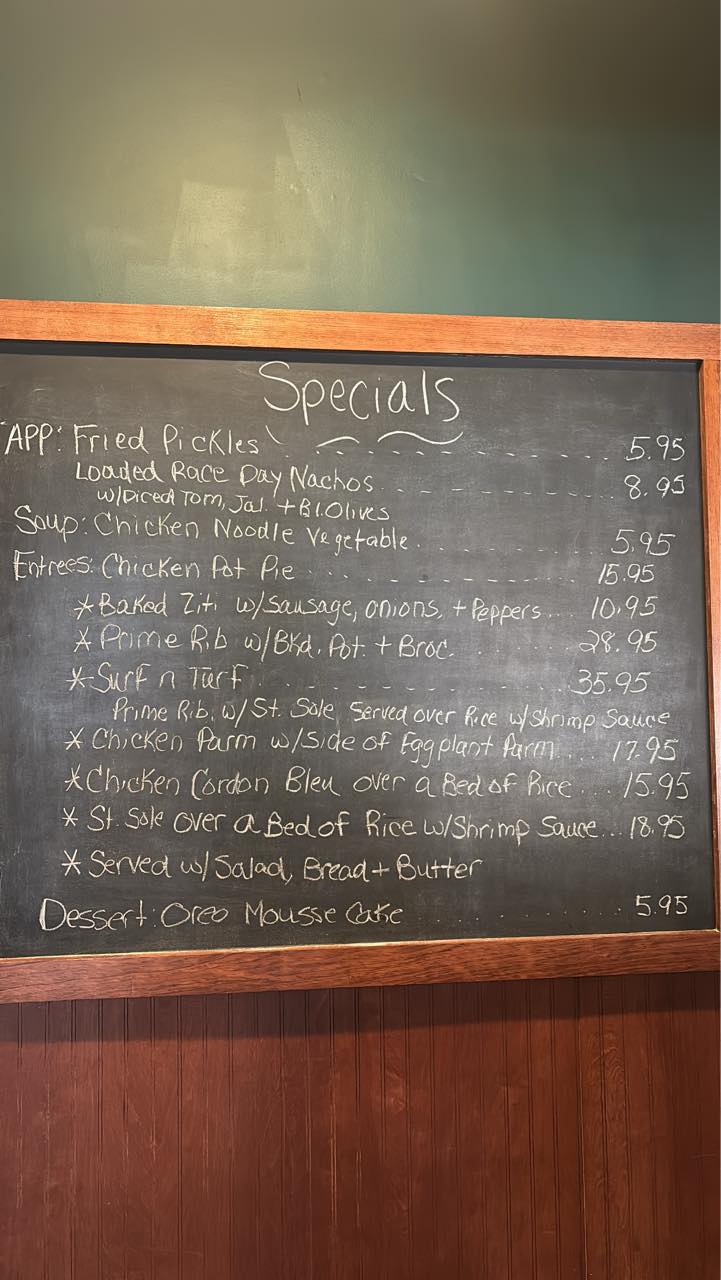 Specials
APP: Fried Pickles 5.95
Loaded Race Day Nachos 8.95
w/Diced Tom, Jal. + Bl. Olives
Soup: Chicken Noodle Vegetable 5.95
Entrees: Chicken Pot Pie 15.95
* Baked Ziti w/sausage, onions, + Peppers 10.95
* Prime Rib w/Bkd. Pot. + Broc. 28.95
* Surf n Turf 35.95
Prime Rib w/ St. Sole Served over Rice w/Shrimp Sauce
* Chicken Parm w/side of Eggplant Parm 17.95
* Chicken Cordon Bleu over a Bed of Rice 15.95
* St. Sole over a Bed of Rice w/Shrimp Sauce 18.95
* Served w/Salad, Bread + Butter
Dessert: Oreo Mousse Cake 5.95